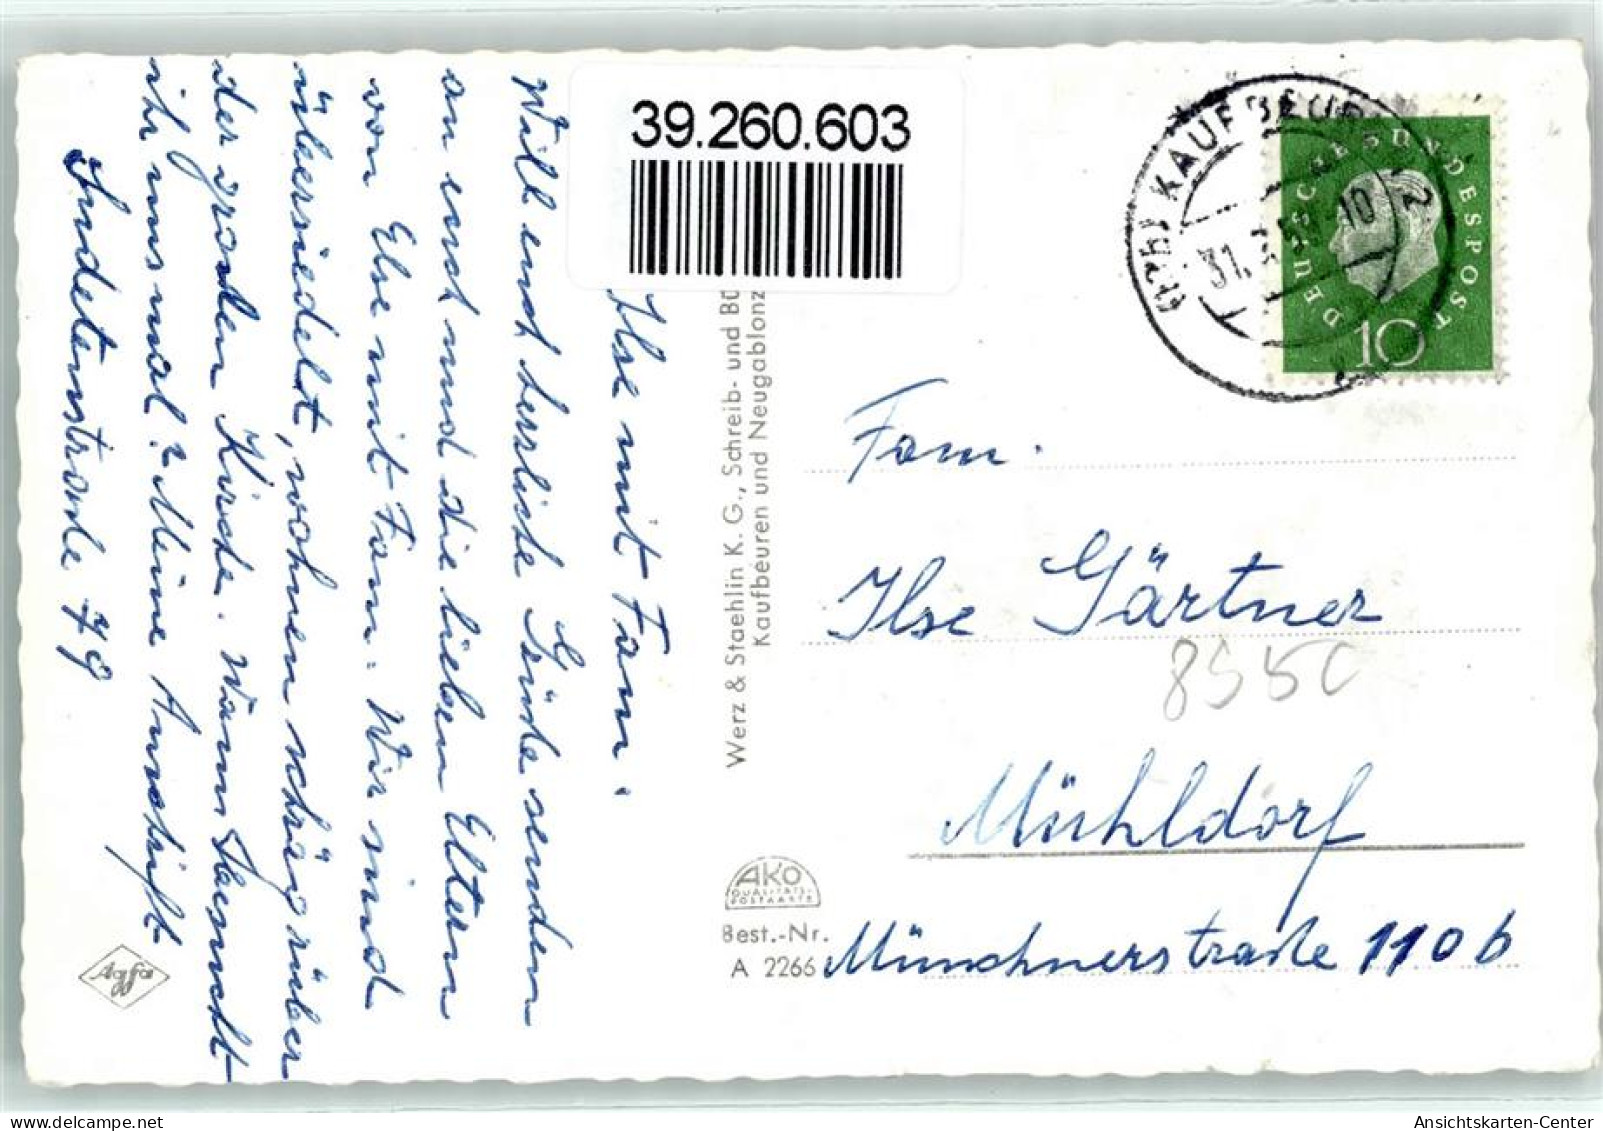 39.260.603
Ilse mit Fam.
Will euch herzliche Grüße senden
an euch und die lieben Eltern
von Else mit Fam. Wir sind
übersiedelt, wohnen schräg rüber
der großen Kirche. Wann besucht
ihr uns mal? Meine Anschrift
Sudetenstraße 79
Agfa
Werz & Staehlin K. G., Schreib- und Bü
Kaufbeuren und Neugablonz
AKO
QUALITÄTS-
POSTKARTE
Best.-Nr.
A 2266
KAUFBEUREN 2
31. 59 -10
DEUTSCHE BUNDESPOST
10
Fam.
Ilse Gärtner
8550
Mühldorf
Münchnerstraße 110 b
Ansichtskarten-Center